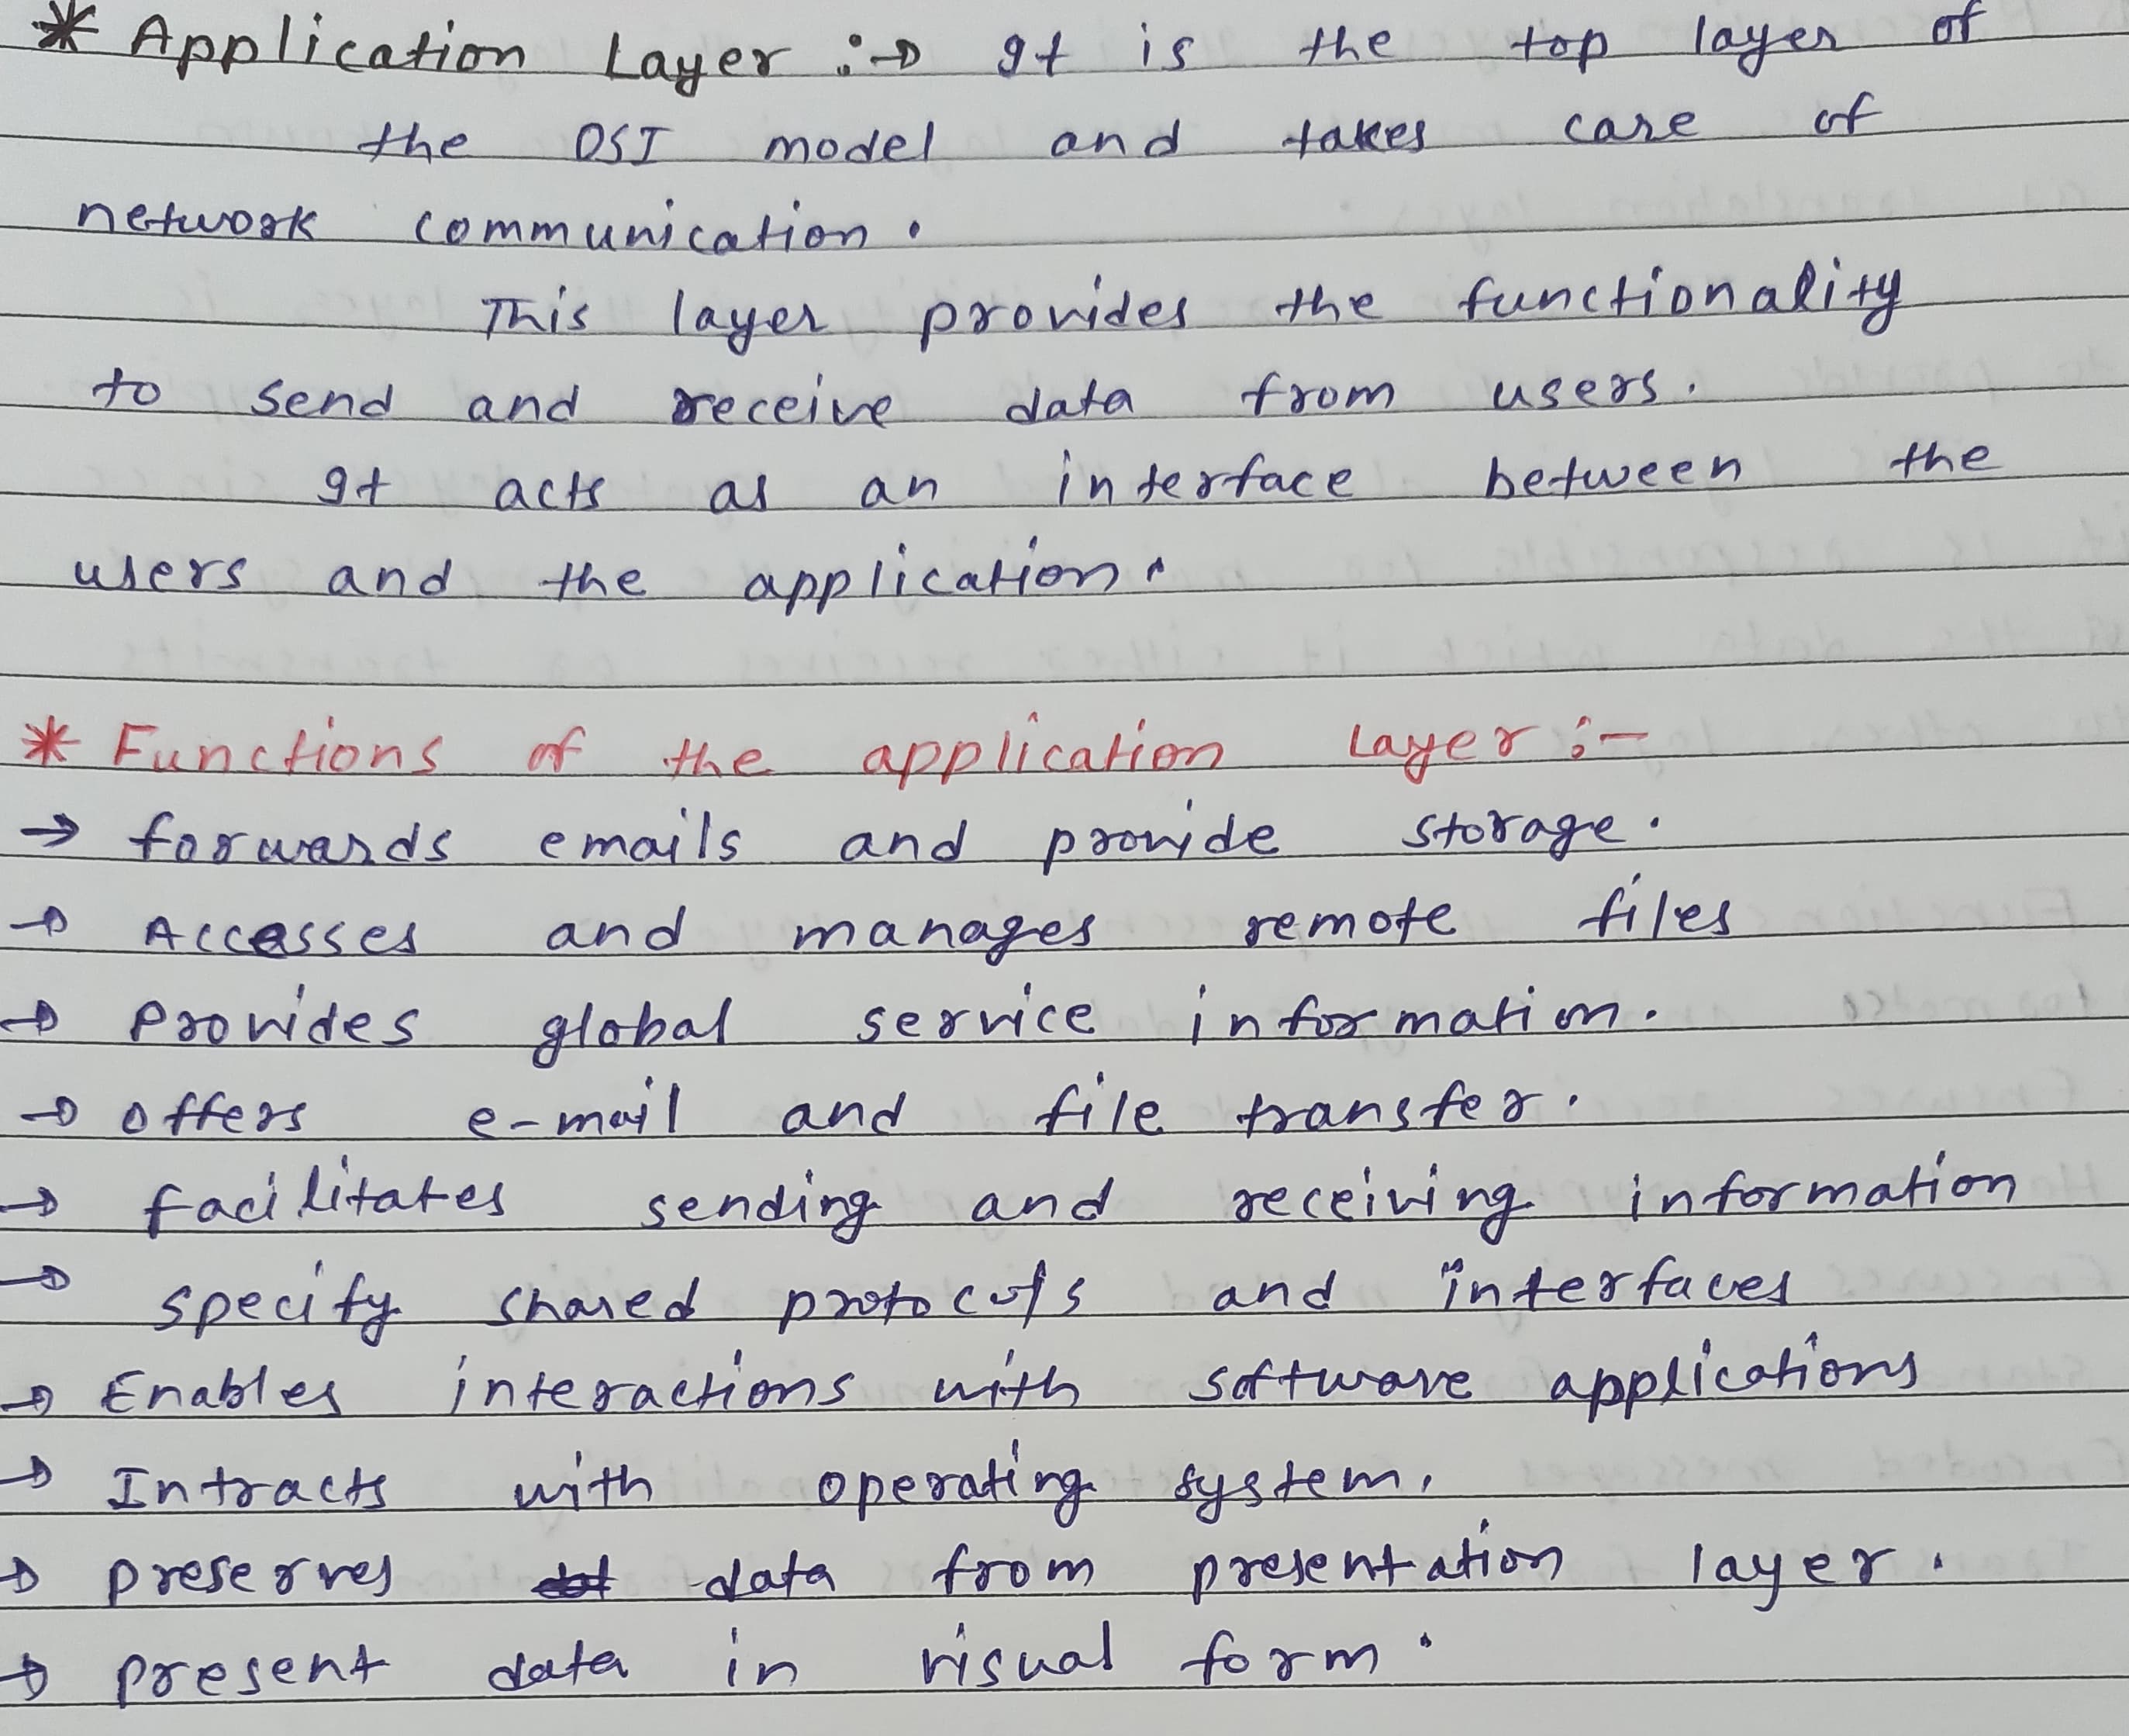 * Application Layer :→ It is the top layer of
the OSI model and takes care of
network communication.
This layer provides the functionality
to send and receive data from users.
It acts as an interface between the
users and the application.
* Functions of the application Layer :-
→ forwards emails and provide storage.
→ Accesses and manages remote files
→ Provides global service information.
→ offers e-mail and file transfer.
→ facilitates sending and receiving information
→ specify shared protocols and interfaces
→ Enables interactions with software applications
→ Intracts with operating system.
→ preserves data from presentation layer.
→ present data in visual form.